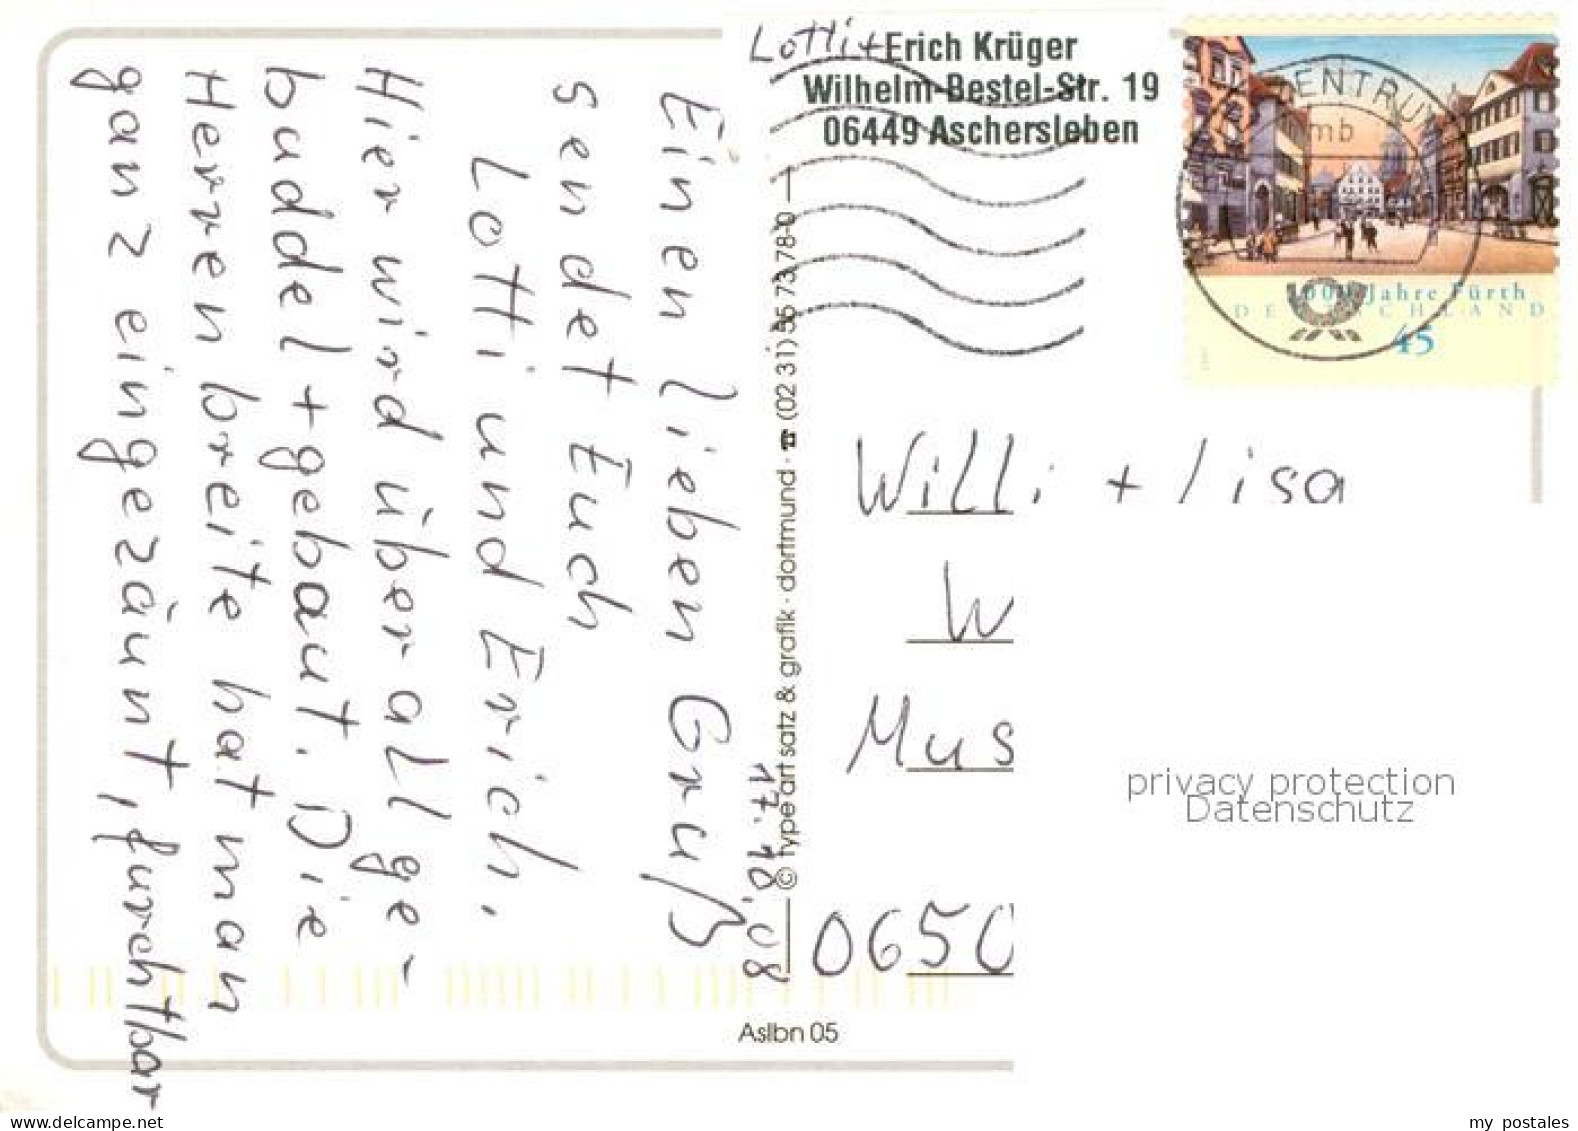 Lotti+Erich Krüger
Wilhelm-Bestel-Str. 19
06449 Aschersleben
ZENTRUM
mb
Jahre Fürth
DEUTSCHLAND
45
17.10.08
Einen lieben Gruß
sendet Euch
Lotti und Erich.
Hier wird überall ge-
buddel+gebaut. Die
Herrenbreite hat man
ganz eingezäunt, furchtbar
© type art satz & grafik · dortmund · ☎ (02 31) 56 73 78-0
Willi + Lisa
W
Mus
0650
privacy protection
Datenschutz
Aslbn 05
my postales